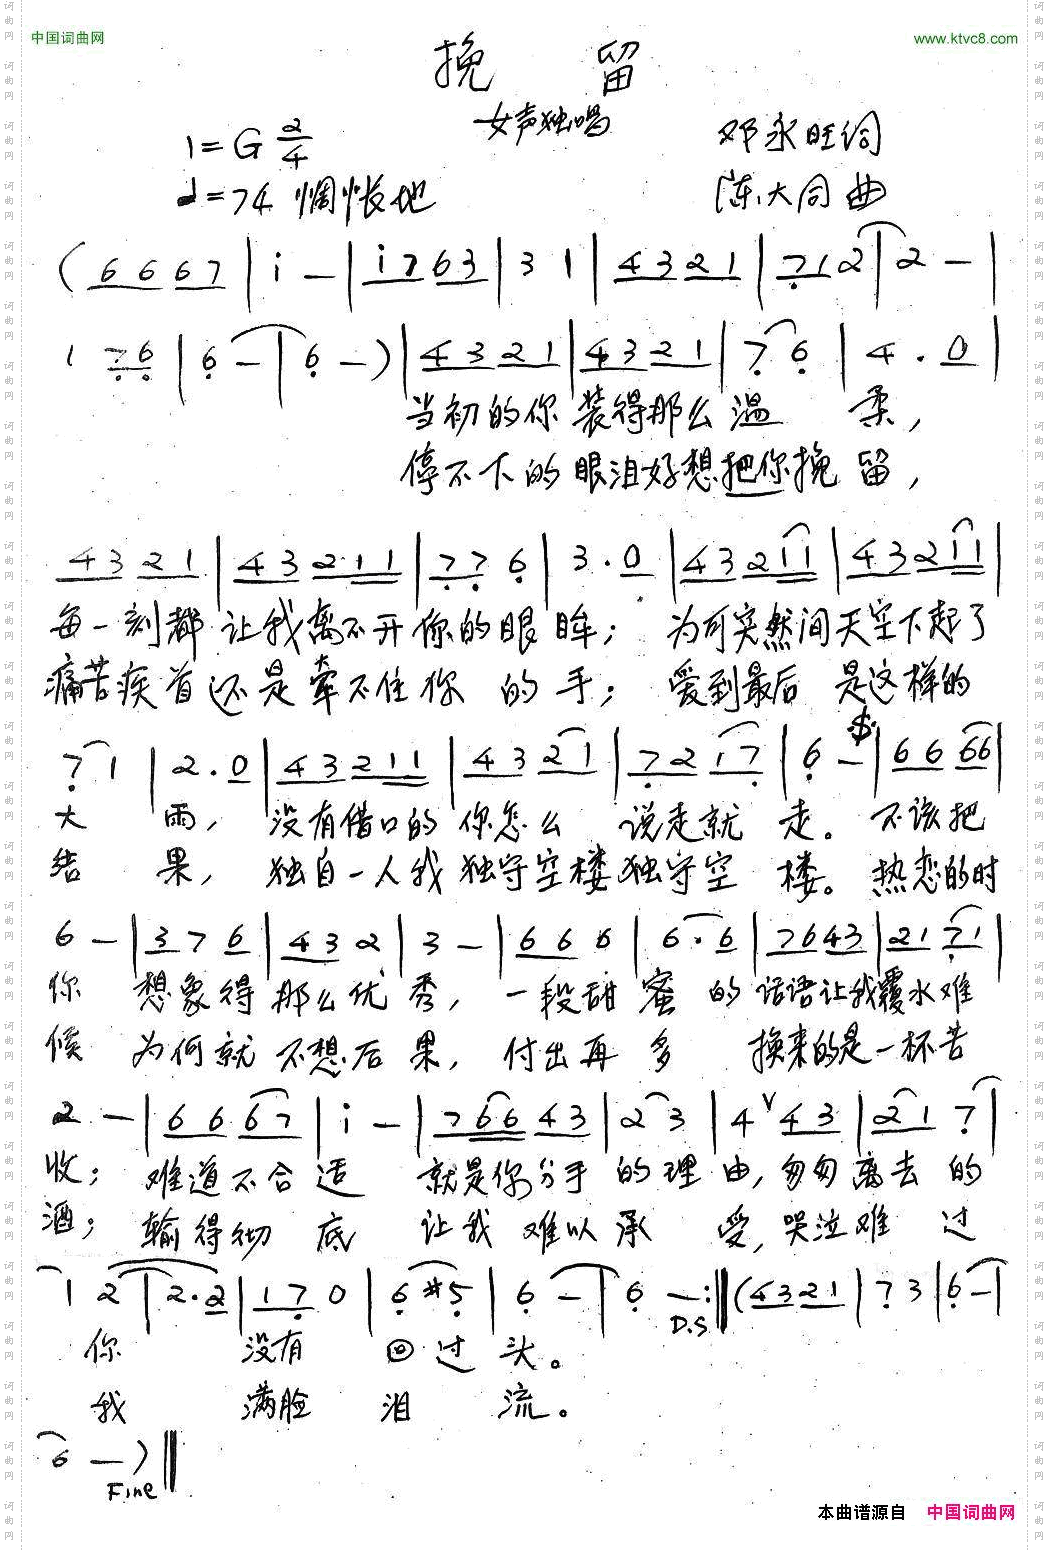 中国词曲网
www.ktvc8.com
挽 留
女声独唱
1=G 2/4
邓永旺词
♩=74 惆怅地
陈大同曲
(6 6 6 7 | i - | i 7 6 3 | 3 1 | 4 3 2 1 | 7 1 2 | 2 - |
1 7 6 | 6 - | 6 - ) | 4 3 2 1 | 4 3 2 1 | 7 6 | 4 . 0 |
当初的你 装得那么 温 柔，
停不下的 眼泪好想 把你挽 留，
4 3 2 1 | 4 3 2 1 1 | 7 7 6 | 3 . 0 | 4 3 2 1 1 | 4 3 2 1 1 |
每一刻都 让我离不开 你的眼 眸； 为何突然间 天空下起了
痛苦疾首 还是牵不住 你 的 手； 爱到最后 是这样的
7 1 | 2 . 0 | 4 3 2 1 1 | 4 3 2 1 | 7 2 1 7 | 6 - | 6 6 6 6 |
大 雨， 没有借口的 你怎么 说走就 走。 不该把
结 果， 独自一人我 独守空楼 独守空 楼。 热恋的时
6 - | 3 7 6 | 4 3 2 | 3 - | 6 6 6 | 6 . 6 | 7 6 4 3 | 2 1 7 1 |
你 想象得 那么优 秀， 一段甜 蜜 的 话语让我 覆水难
候 为何就 不想后 果， 付出再 多 换来的是 一杯苦
2 - | 6 6 6 7 | i - | 7 6 6 4 3 | 2 3 | 4 V 4 3 | 2 1 7 |
收； 难道不合 适 就是你分手 的 理 由，匆匆 离去 的
酒； 输得彻 底 让我 难以 承 受，哭泣 难 过
1 2 | 2 . 2 | 1 7 0 | 6 #5 | 6 - | 6 - :‖ (4 3 2 1 | 7 3 | 6 - |
D.S
你 没有 回 过 头。
我 满脸 泪 流。
6 - ) ‖
Fine
本曲谱源自 中国词曲网